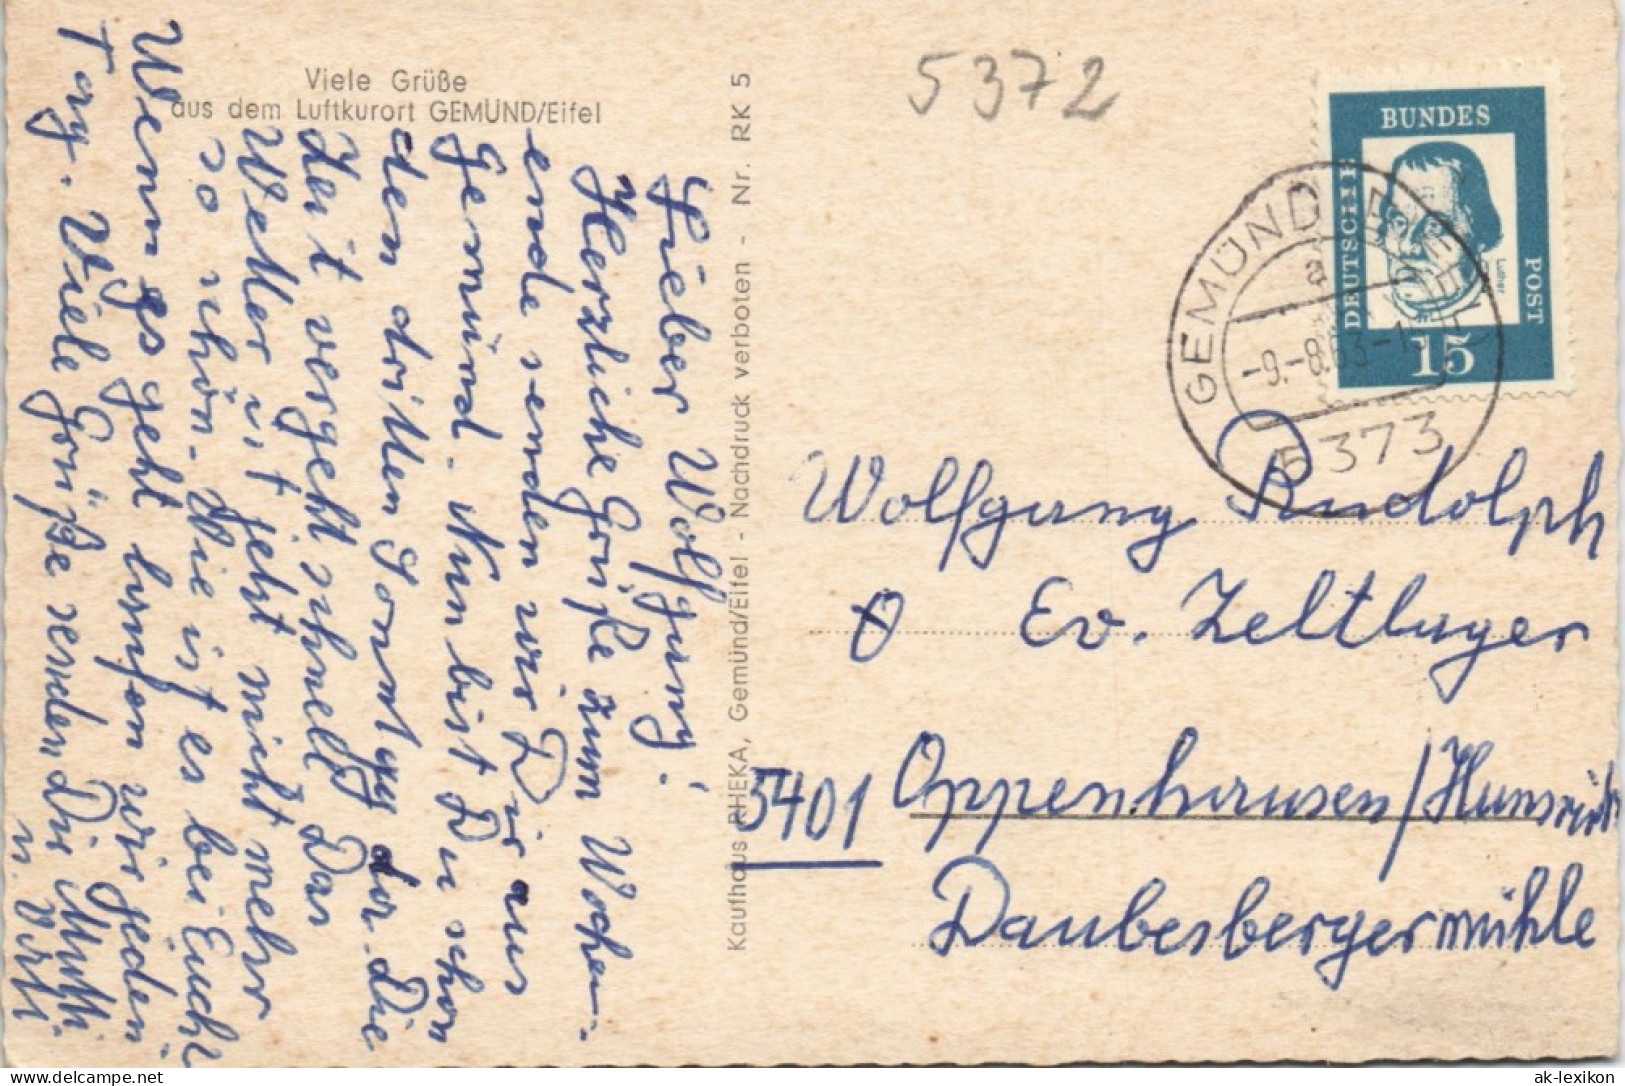 Viele Grüße
aus dem Luftkurort GEMÜND/Eifel
Lieber Wolfgang!
Herzliche Grüße zum Wochen-
ende senden wir Dir aus
Gemünd. Nun bist Du schon
den dritten Sonntag dor. Die
Zeit vergeht schnell. Das
Wetter ist jetzt nicht mehr
so schön. Wie ist es bei Euch?
Wenn es geht laufen wir jeden
Tag. Viele Grüße senden Dir Mutti
u. Vati
Kaufhaus RHEKA, Gemünd/Eifel - Nachdruck verboten - Nr. RK 5
5372
DEUTSCHE
BUNDES
POST
Luther
15
GEMÜND (EIFEL)
a
-9.-8.63-1
5373
Wolfgang Rudolph
Ev. Zeltlager
5401 Oppenhausen/Hunsrück
Daubesbergermühle
www.delcampe.net
ak-lexikon